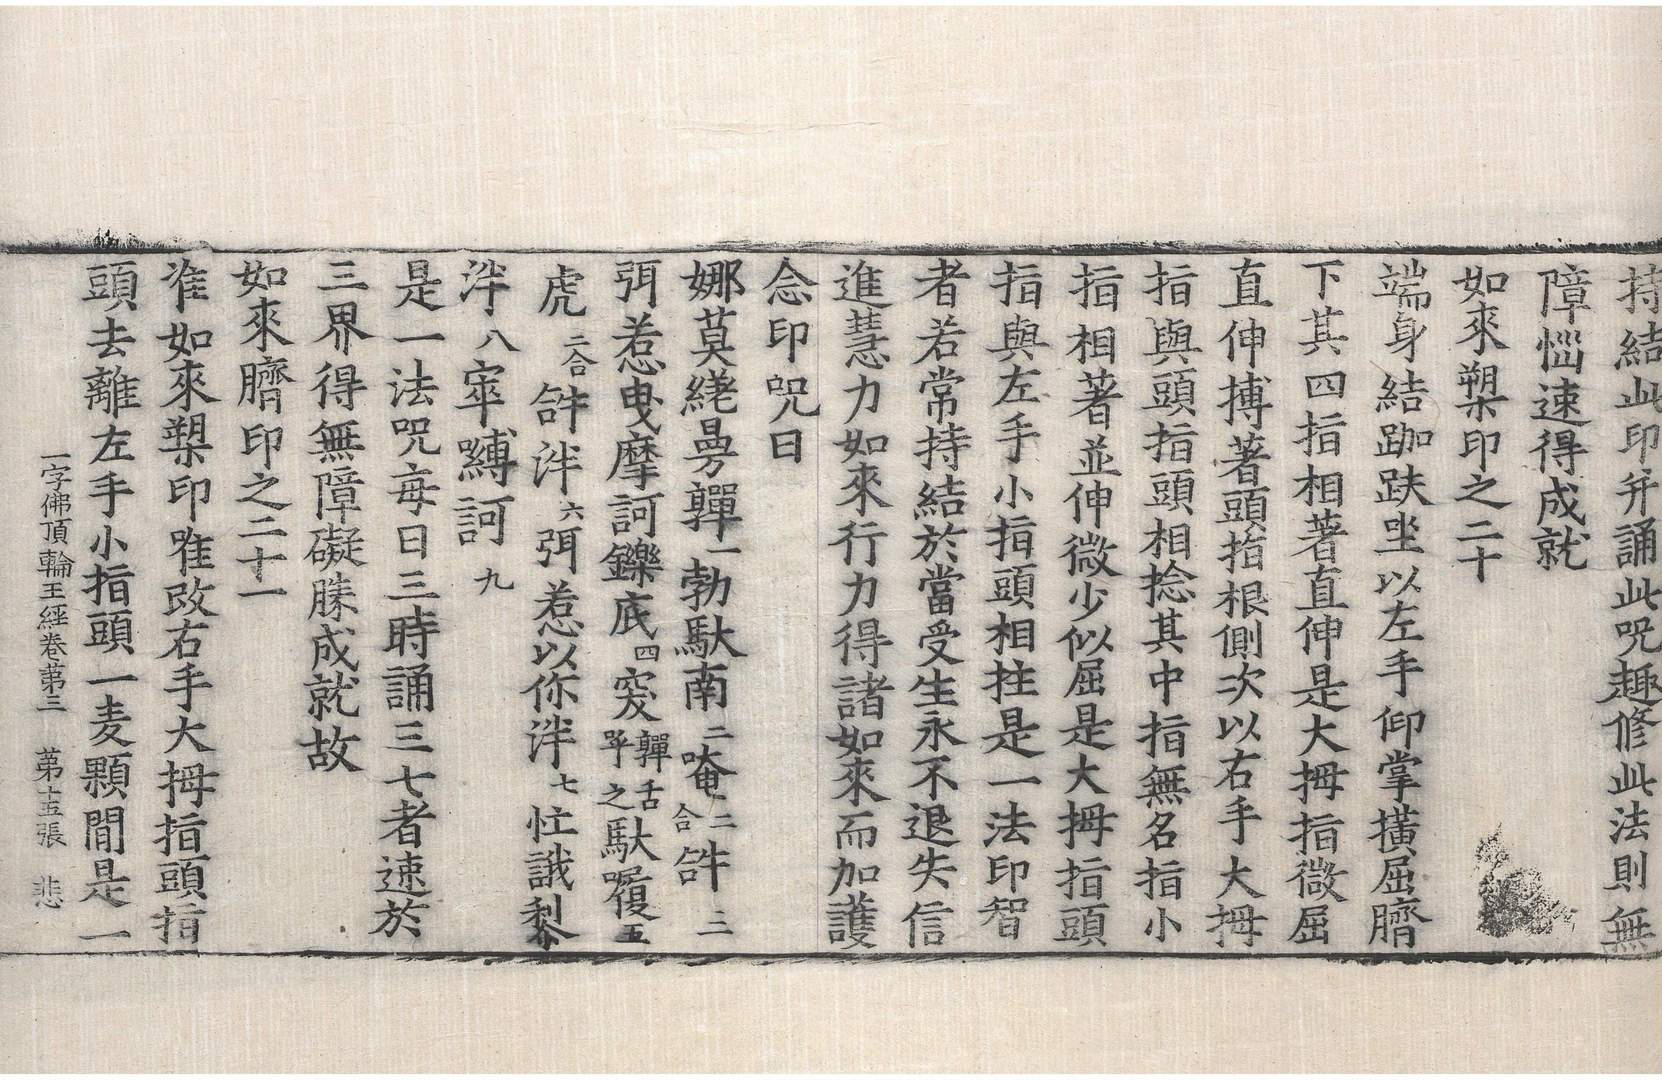 持結此印并誦此咒趣修此法則無
障惱速得成就
如來槊印之二十
端身結跏趺坐以左手仰掌撗屈臍
下其四指相著直伸是大拇指微屈
直伸搏著頭指根側次以右手大拇
指與頭指頭相捻其中指無名指小
指相著並伸微少似屈是大拇指頭
指與左手小指頭相拄是一法印智
者若常持結於當受生永不退失信
進慧力如來行力得諸如來而加護
念印咒曰
娜莫繞曼嚲一勃馱南二唵二合𤙖三
弭惹曳摩訶鑠底四窣嚲舌呼之馱囇五
虎二合𤙖泮六弭惹以你泮七怃誐𥠖
泮八寧縛訶九
是一法咒每日三時誦三七者速於
三界得無障礙勝成就故
如來臍印之二十一
准如來槊印唯改右手大拇指頭指
頭去離左手小指頭一麦顆間是一
一字佛頂輪王經卷第三　第十五張　悲